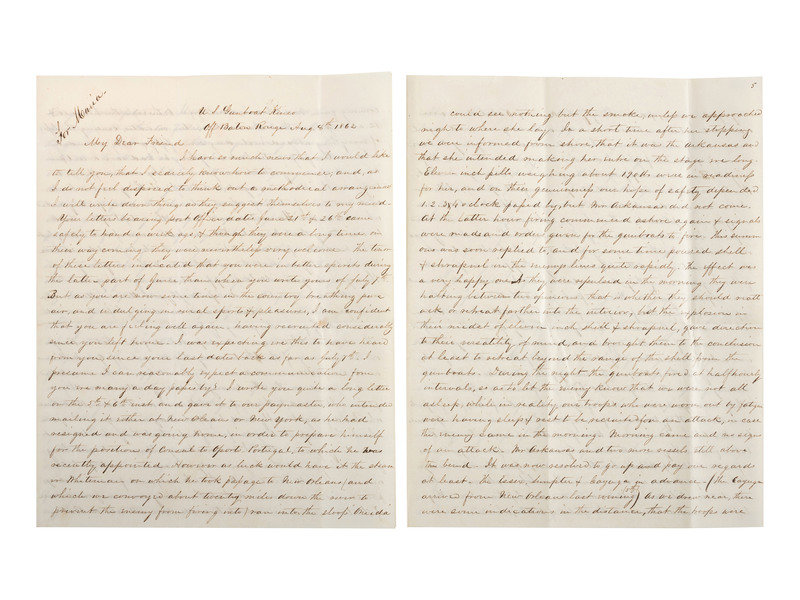 For Maria.
U. S. Gunboat Kineo
Off Baton Rouge Aug 8th 1862
My Dear Friend
I have so much news that I would like
to tell you, that I scarcely know how to commence, and, as
I do not feel disposed to think out a methodical arrangement
I will write down things as they suggest themselves to my mind
Your letters bearing post office date June 21st & 26th came
safely to hand a week ago, & though they were a long time on
their way coming they were nevertheless very welcome. The tenor
of these letters indicated that you were in better spirits during
the later part of June than when you wrote yours of July 7th.
But as you are now since then in the country, breathing pure
air, and indulging in rural sports & pleasures, I am confident
that you are feeling well again, having recruited considerably
since you left home. I was expecting ere this to have heard
from you, since your last dates back as far as July 7th. I
presume I can reasonably expect a communication from
you ere many a day passes by? I wrote you quite a long letter
on the 5th & 6th inst and gave it to our paymaster, who intended
mailing it either at New Orleans or New York, as he had
resigned and was going home, in order to prepare himself
for the position of Consul to Oporto Portugal, to which he was
recently appointed. However as luck would have it the steam
er Whiteman on which he took passage to New Orleans (and
which we convoyed about twenty miles down the river to
prevent the enemy from firing into) ran into the sloop Oneida
5
could see nothing but the smoke, unless we approached
nigh to where she lay. In a short time after her stopping
we were informed from shore, that it was the Arkansas and
that she intended making her entre on the stage ere long.
Eleven inch pills weighing about 190 lbs were in readiness
for her, and on their genuineness our hope of safety depended
1. 2. 3 & 4 o clock passed by, but Mr Arkansas did not come.
At the latter hour firing commenced ashore again & signals
were made and order given for the gunboats to fire. This summ
ons was soon replied to, and for some time poured shell
& shrapnel in the enemys lines quite rapidly. The effect was
a very happy one. As they were repulsed in the morning they were
halting between two opinions that is whether they should reatt
ack or retreat farther into the interior, but the explosion in
their midst of eleven inch shell & shrapnel, gave direction
to their versatility of mind, and brought them to the conclusion
at least to retreat beyond the range of the shell from the
gunboats. During the night the gunboats fired at half hourly
intervals, so as to let the enemy know that we were not all
asleep, while in reality our troops who were worn out by fatigue
were having sleep & rest to be recruited for an attack, in case
the enemy came in the morning. Morning came and no signs
of an attack. Mr Arkansas and two more vessels still above
the bend. It was now resolved to go up and pay our regard
at least. The Essex, Sumpter & Cayuga in advance, (the Cayuga
arrived from New Orleans last evening) As we drew near there
were some indications in the distance, that the troops were